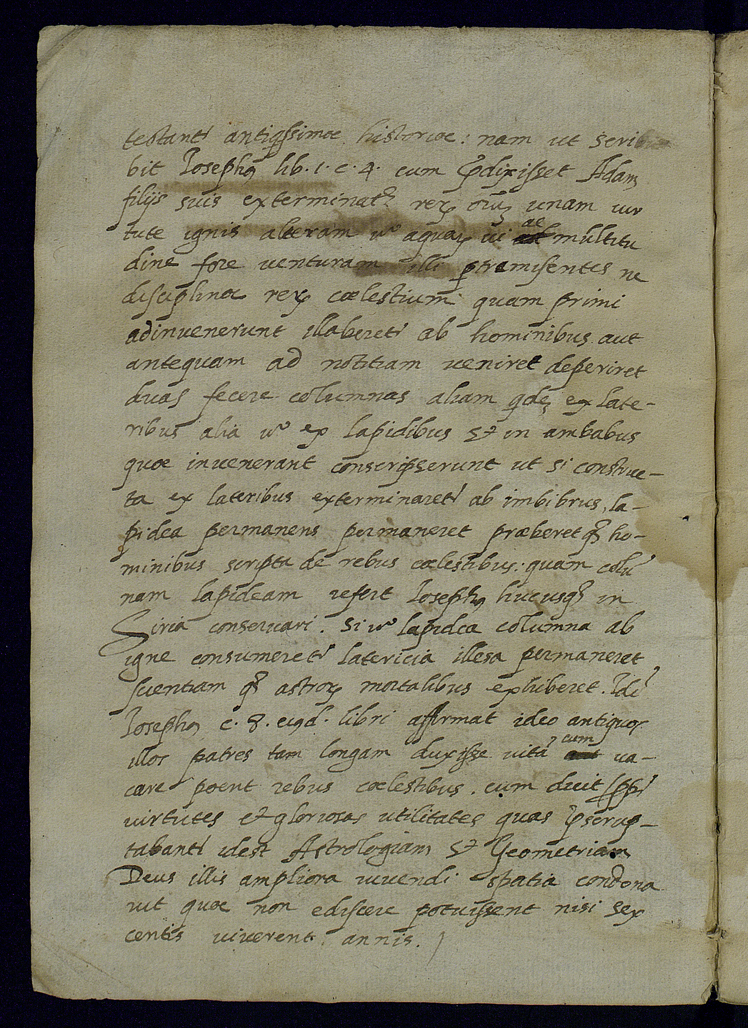 testant᷑ antiqssimae historiae: nam ut scri
bit Ioseph⁹ lib. 1. c. 4. cum p̄dixisset Adam
filijs suis exterminat᷑ reꝝ oīuȝ unam uir
tute ignis alteram u° aquaꝝ ui ac multitu
dine fore uenturam illi praemisentes ne
disciplinae reꝝ coelestium quam primi
adinuenerunt illaberet᷑ ab hominibus aut
antequam ad notitiam ueniret deperiret
duas fecere columnas aliam qdē ex late-
ribus aliā u° ex lapidibus et in ambabus
quae inuenerant conscripserunt ut si construc-
ta ex lateribus exterminaret᷑ ab imbibrus, la-
pidea permanens permaneret praeberet qȝ ho-
minibus scripta de rebus coelestibus: quam colū
nam lapideam refert Ioseph⁹ hucusqȝ in
Siria conseruari. Si u° lapidea columna ab
igne consumeret᷑ latericia illesa permaneret
scientiam qȝ astroꝝ mortalibus exhiberet. Idē
Ioseph⁹ c. 8. eiqd. libri affirmat ideo antiquos
illos patres tam longam duxisse uitā cum ua-
care poent rebus coelestibus. cum dicit ꝓpt᷑
uirtutes et gloriosas utilitates quas p̄scrup-
tabant᷑ idest Astrologiam et Geometriam
Deus illis ampliora uiuendi spatia condona
uit quae non ediscere potuissent nisi sex
centis uiuerent annis.)